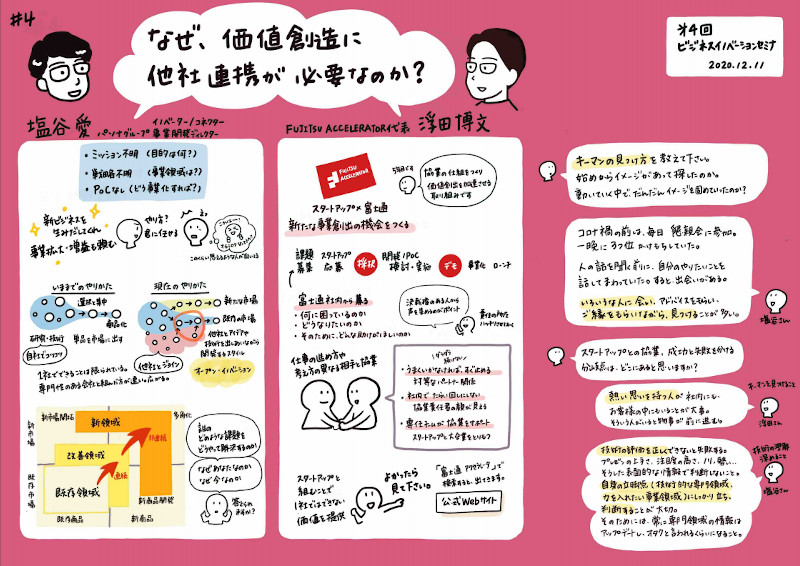 #4
なぜ、価値創造に
他社連携が必要なのか?
第4回
ビジネスイノベーションセミナ
2020.12.11
塩谷 愛
イノベーター/コネクター
パーソナルグループ 事業開発ディレクター
・ミッション不明(目的は何?)
・戦略不明(事業領域は?)
・PoCなし(どう事業化すれば?)
新ビジネスを
生みだしてくれ
事業拡大・増益も頼む
やり方?
君に任せる
いままでのやりかた
選択と集中
商品化
研究・技術
単品を市場に出す
自社でコツコツ
現在のやりかた
新たな市場
既存の市場
他社とアイデアや
技術を出しあいながら
開発するスタイル
他社とジョイン
オープン・イノベーション
1社でできることは限られている。
専門性のある会社と組んだ方が速いし広がる。
新市場開拓
多角化
新市場
既存市場
新領域
改善領域
既存領域
非連続
連続
新商品開発
既存商品
新商品
誰の
どのような課題を
どうやって解決するのか
なぜあなたなのか
なぜ今なのか
答えられ
ますか?
FUJITSU ACCELERATOR代表 浮田博文
FUJITSU
ACCELERATOR
協業の仕組をつくり
価値創出を加速させる
取り組みです
スタートアップ×富士通
新たな事業創出の機会をつくる
課題
募集
スタートアップ
応募
採択
開発/PoC
検討・実施
デモ
事業化
ローンチ
富士通社内から募る
・何に困っているのか
・どうなりたいのか
・そのために、どんな助けがほしいのか
決裁権のある人から
声を集めるのがポイント
仕事の進め方や
考え方の異なる相手と協業
・うまくいかなければ、すぐ止める
対等なパートナー関係
・社内でたらい回しにしない
協業責任者の顔が見える
・専任チームが協業をサポート
スタートアップと大企業をとりもつ
スタートアップと
組むことで
1社ではできない
価値を提供
よかったら
見て下さい。
「富士通 アクセラレータ」で
検索すると、出てきます。
公式Webサイト
キーマンの見つけ方を教えて下さい。
始めからイメージがあって探したのか。
動いていく中で、だんだんイメージを固めていったのか?
コロナ禍の前は、毎日 懇親会に参加。
一晩に3つ位かけもちしていた。
人の話を聞く前に、自分のやりたいことを
話してまわっていた。すると、出会いがある。
いろいろな人に会い、アドバイスをもらい、
ご縁をもらいながら、見つけることが多い。
塩谷さん
スタートアップとの協業、成功と失敗を分ける
分岐点は、どこにあると思いますか?
キーマンを見つけること
熱い思いを持つ人が社内にも、
お客様の中にもいることが大事。
そういう人がいると物事が前に進む。
浮田さん
技術の評価を正しくできないと失敗する。
プレゼンの上手さ、注目度の高さ、ノリ、勢い…
そうした表面的な情報で判断しないこと。
自身の立脚点(技術的な専門領域、
力を入れたい事業領域)にしっかり立ち、
判断することが大切。
そのためには、常に専門領域の情報は
アップデートし、オタクと言われるくらいになること。
技術の理解
深めること
塩谷さん